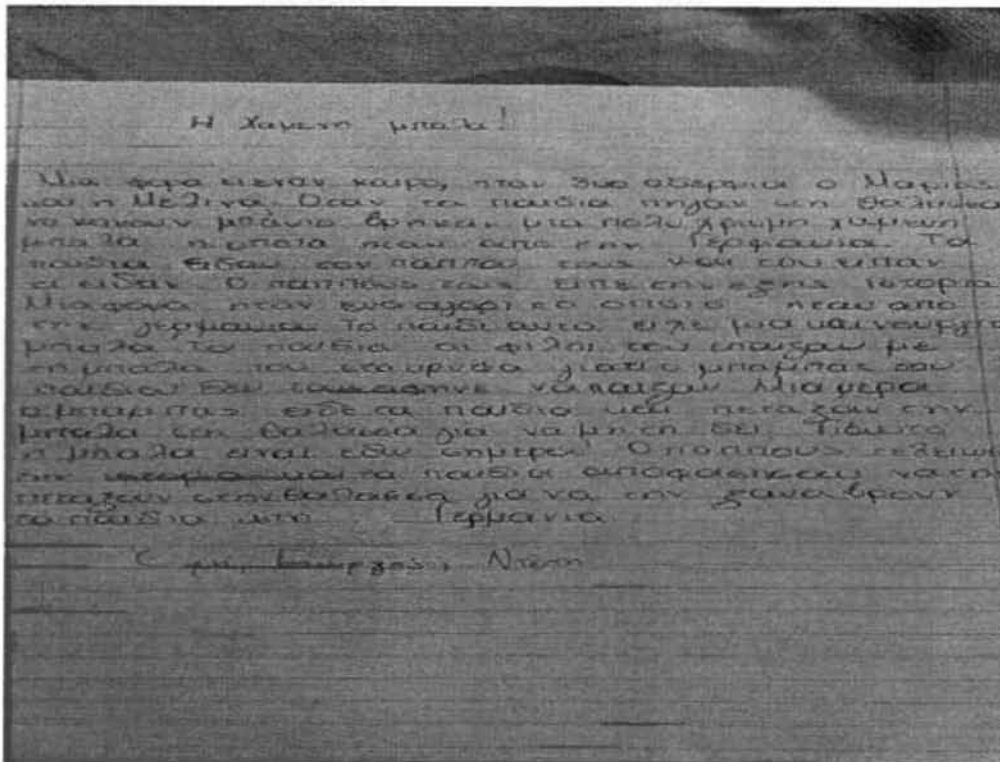 Η χαμενη μπαλα!
Μια φορα ειεναν καιρο, ηταν δυο αδερφια ο Μαριος
και η Μελινα. Οταν τα παιδια πηγαν στη θαλασσα
να κανουν μπανιο βρηκαν μια πολυχρωμη χαμενη
μπαλα η οποια ηταν απο την Γερμανια. Τα
παιδια ειδαν τον παππου τους και του ειπαν
τι ειδαν. Ο παππους τους ειπε την εξης ιστορια
Μια φορα ηταν ενα αγορι το οποιο ηταν απο
την γερμανια το παιδι αυτο ειχε μια καινουργια
μπαλα τα παιδια οι φιλοι του επαιζαν με
τη μπαλα του γιατι ο μπαμπας του
παιδιου δεν να παιζουν Μια μερα
ο μπαμπας ειδε τα παιδια και πεταξαν την
μπαλα στη θαλασσα για να μη τη δει.
η μπαλα ειναι εδω σημερα! Ο παππους τελειωσε
την και τα παιδια αποφασισαν να τη
πεταξουν στην θαλασσα για να την ξαναβρουν
τα παιδια στη Γερμανια
Γιωργος, Ντεπη